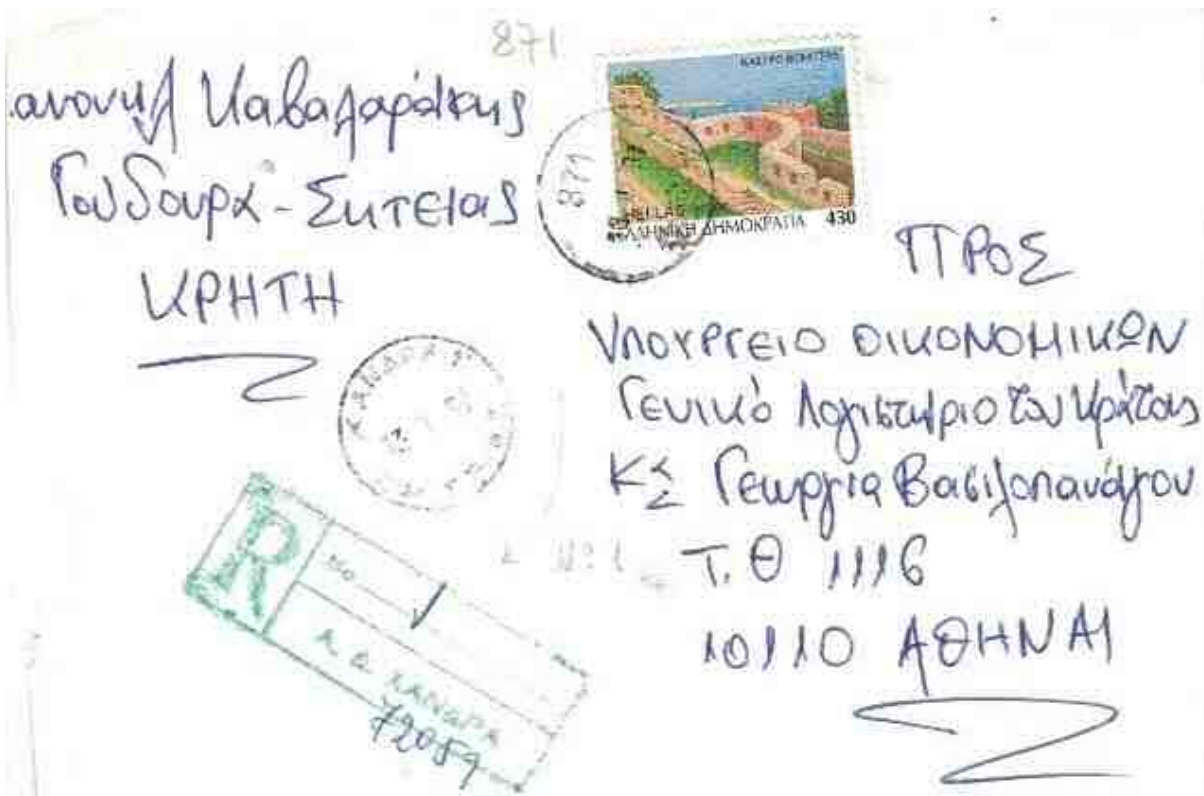 871
Καβαλαράκης
Γουδουρα - Σητείας
ΚΡΗΤΗ
ΚΑΣΤΡΟ ΒΟΝΙΤΣΑΣ
HELLAS
ΕΛΛΗΝΙΚΗ ΔΗΜΟΚΡΑΤΙΑ 430
871
ΠΡΟΣ
ΥΠΟΥΡΓΕΙΟ ΟΙΚΟΝΟΜΙΚΩΝ
Γενικό Λογιστήριο του Κράτους
Γεωργία Βασιλοπανάγου
Τ.Θ 1116
10110 ΑΘΗΝΑΙ
ΧΑΝΔΡΑΣ
R
No 1
ΧΑΝΔΡΑ
72059